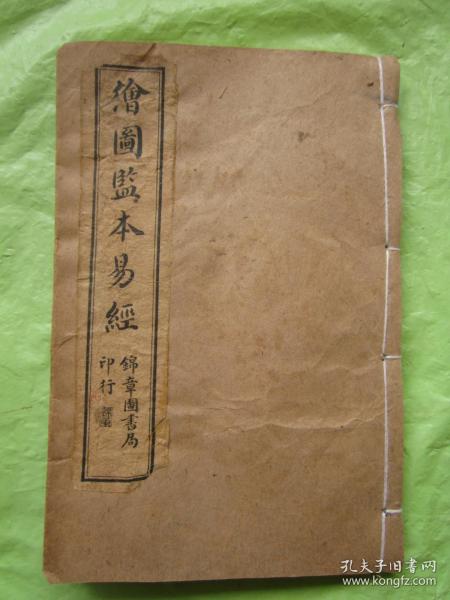 繪圖監本易經
錦章圖書局
印行
孔夫子旧书网
www.kongfz.com